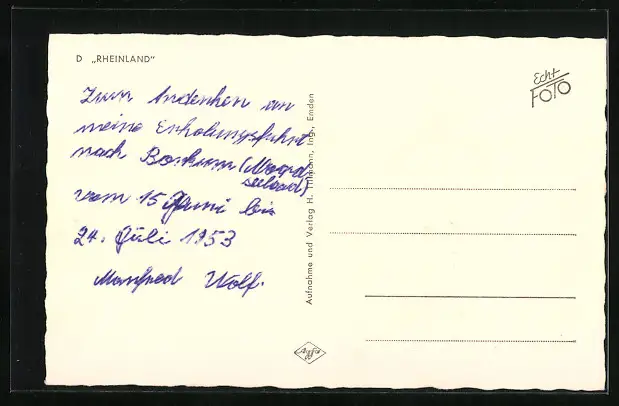 D „RHEINLAND"
Echt
FOTO
Zum Andenken an
meine Erholungsfahrt
nach Borkum (Nord
seebad)
vom 15 Juni bis
24. Juli 1953
Manfred Wolf.
Aufnahme und Verlag H. Tillmann, Ing., Emden
Agfa